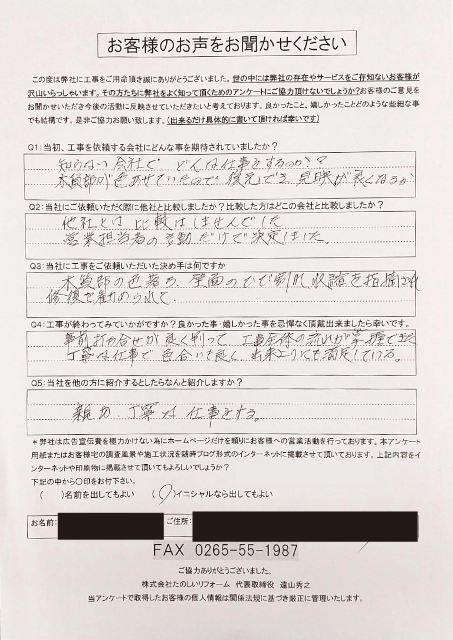 お客様のお声をお聞かせください
この度は弊社に工事をご用命頂き誠にありがとうございました。世の中には弊社の存在やサービスをご存知ないお客様が
沢山いらっしゃいます。その方たちに弊社をよく知って頂くためのアンケートにご協力頂けないでしょうか?お客様のご意見を
お聞かせいただき今後の活動に反映させていただきたいと考えております。良かったこと、嬉しかったことどのような些細な事
でも結構です。是非ご協力お願い致します。(出来るだけ具体的に書いて頂ければ幸いです)
Q1:当初、工事を依頼する会社にどんな事を期待されていましたか?
知らない会社で どんな仕事をするのか?
木質部が色あせていたので、復元でき、見映が良くなるか
Q2:当社にご依頼いただく際に他社と比較しましたか?比較した方はどこの会社と比較しましたか?
他社とは比較はしませんでした
営業担当者の言動だけで決定しました。
Q3:当社に工事をご依頼いただいた決め手は何ですか
木質部の色あせ、壁面のひび割れ、収縮を指摘され
修復を勧められて、
Q4:工事が終わってみていかがですか?良かった事・嬉しかった事を忌憚なく頂戴出来ましたら幸いです。
事前打ち合せが良く判って、工事全体の流れが掌握できた
丁寧な仕事で色合いも良く、出来上りにも満足している。
Q5:当社を他の方に紹介するとしたらなんと紹介しますか?
親切、丁寧な仕事をする。
*弊社は広告宣伝費を極力かけない為にホームページだけを頼りにお客様への営業活動を行っております。本アンケート
用紙またはお客様宅の調査風景や施工状況を随時ブログ形式のインターネットに掲載させて頂いております。上記内容をイ
ンターネットや印刷物に掲載させて頂いてもよろしいでしょうか?
下記の中から〇印をお付下さい。
( )名前を出してもよい (〇)イニシャルなら出してもよい
お名前: ご住所:
FAX 0265-55-1987
ご協力ありがとうございました。
株式会社たのしいリフォーム 代表取締役 遠山秀之
当アンケートで取得したお客様の個人情報は関係法規に基づき厳正に管理いたします。